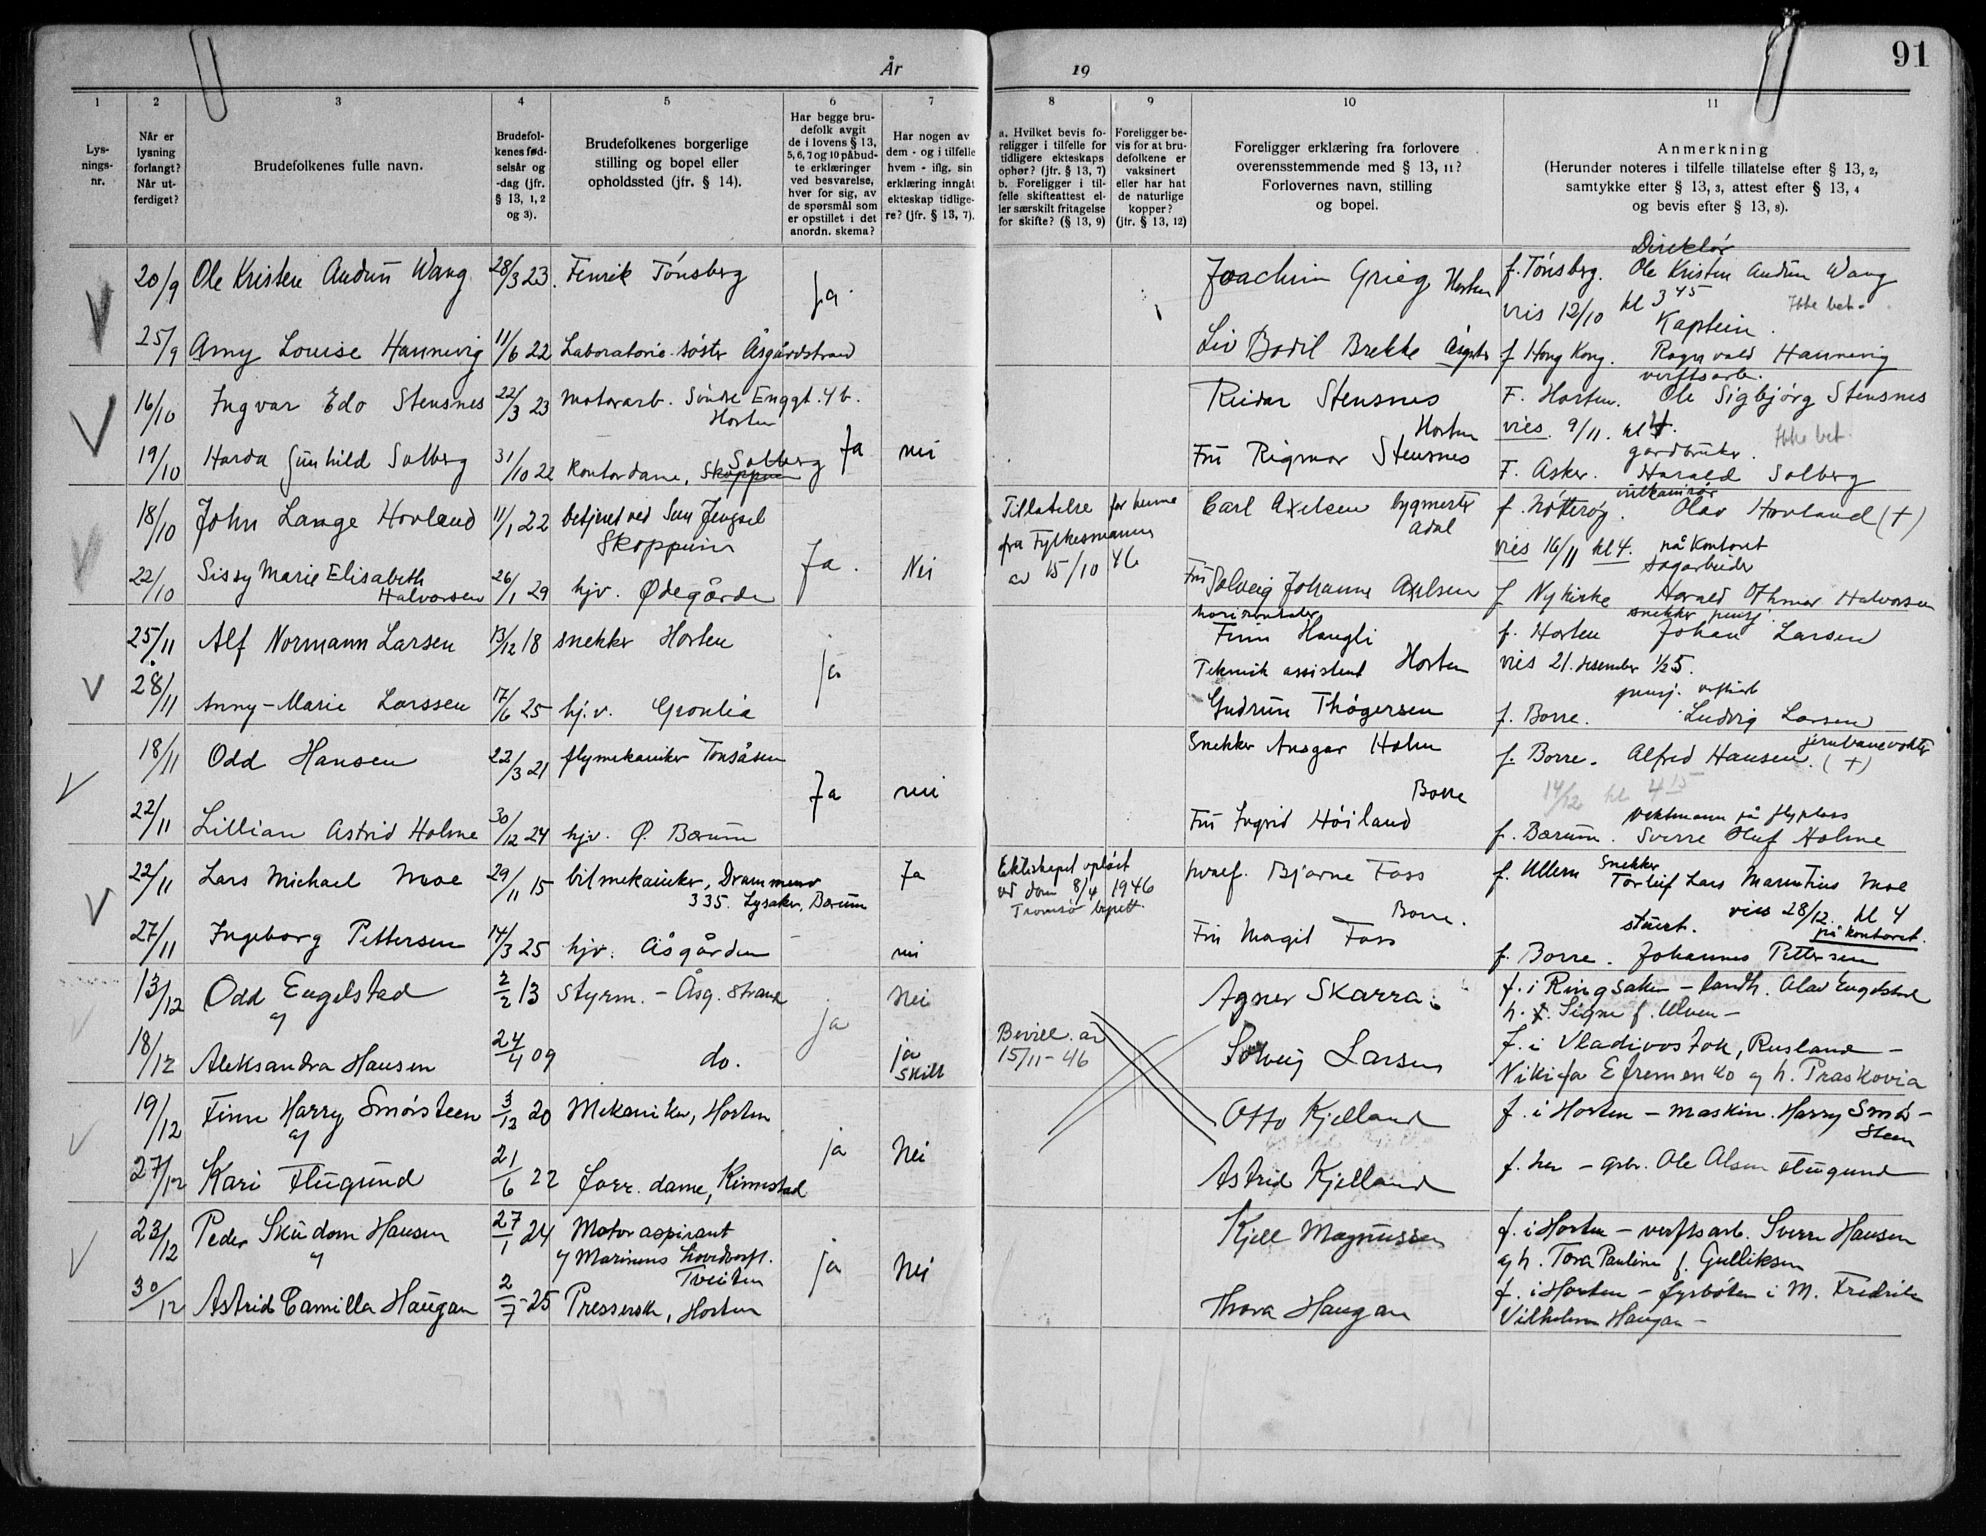 91
År
19
1
2
3
4
5
6
7
8
9
10
11
Lys-
nings-
nr.
Når er
lysning
forlangt?
Når ut-
ferdiget?
Brudefolkenes fulle navn.
Brudefol-
kenes fød-
selsår og
-dag (jfr.
§ 13, 1, 2
og 3).
Brudefolkenes borgerlige
stilling og bopel eller
opholdssted (jfr. § 14).
Har begge bru-
defolk avgit
de i lovens § 13,
5, 6, 7 og 10 påbud-
te erklæringer
ved besvarelse,
hver for sig, av
de spørsmål som
er opstillet i det
anordn. skema?
Har nogen av
dem - og i tilfelle
hvem - iflg. sin
erklæring inngåt
ekteskap tidlige-
re? (jfr. § 13, 7).
a. Hvilket bevis fo-
religger i tilfelle for
tidligere ekteskaps
ophør? (jfr. § 13, 7)
b. Foreligger i til-
felle skifteattest el-
ler særskilt fritagelse
for skifte? (§ 13, 9)
Foreligger be-
vis for at bru-
defolkene er
vaksinert
eller har hat
de naturlige
kopper?
(jfr. § 13, 12)
Foreligger erklæring fra forlovere
overensstemmende med § 13, 11?
Forlovernes navn, stilling
og bopel.
Anmerkning
(Herunder noteres i tilfelle tillatelse efter § 13, 2,
samtykke efter § 13, 3, attest efter § 13, 4
og bevis efter § 13, 8).
Direktør
20/9 Ole Kristen Audun Wang 28/3 23. Fenrik Tønsberg Ja. Joachim Grieg Horten f. Tønsberg. Ole Kristen Audun Wang
vies 12/10 kl 3 45 Ikke bet.
Kaptein.
25/9 Amy Louise Hannevig 11/6 22 Laboratorie-søster Åsgårdstrand Liv Bodil Brekke Åsgstr f Hong Kong. Ragnvald Hannevig
verftsarb.
16/10 Ingvar Edo Stensnes 22/3 23 motorarb. Søndre Enggt. 4 b. Horten Reidar Stensnes Horten F. Horten. Ole Sigbjørg Stensnes
Ja nei vies 9/11. kl 4. Ikke bet.
gardbruker.
19/10 Harda Gunhild Solberg 31/10 22 Kontordame, Skoppum Solberg Fru Rigmor Stensnes F. Asker. Harald Solberg
18/10 John Lange Hovland 11/1 22 betjent ved Sem fengsel Skoppum Tillatelse for henne Carl Axelsen bygmester Adal f. Nøtterøy. Olav Hovland (+)
fra Fylkesmannen
Ja. Nei av 15/10 46 vies 16/11 kl 4. på kontoret
sagarbeider
22/10 Sissy Marie Elisabeth Halvorsen 26/1 29 hjv. Ødegården Fru Solveig Johanne Axelsen f Nykirke Harald Othmar Halvorsen
snekker pensj.
25/11 Alf Normann Larsen 13/12 18 snekker Horten Finn Haugli f. Horten Johan Larsen
ja Teknisk assistent Horten vies 21. desember 1/2 5.
28/11 Anny-Marie Larssen 17/6 25 hj.v. Gronlia Gudrun Thøgersen f. Borre. Ludvig Larsen
18/11 Odd Hansen 22/3 21 flymekaniker Tonsåsen Snekker Ansgar Holm f. Borre. Alfred Hansen. (+) jernbanevokter
Ja nei Borre 14/12 kl 4 15
vektmann på flyplass
22/11 Lillian Astrid Holme 30/12 24 hjv. Ø. Bærum Fru Ingrid Høiland f. Bærum. Sverre Oluf Holme
22/11 Lars Michael Moe 29/11 15 bilmekaniker, Drammensv 335. Lysaker, Bærum Ja Ekteskapet opløst Bjarne Foss f. Ullern Snekker Torleif Lars Marentius Moe
ved dom 8/4 1946
Tromsø byrett. Borre. vies 28/12. kl 4
på kontoret.
27/11 Ingeborg Pettersen 14/3 25 hjv. Åsgården nei Fru Magit Foss f. Borre. Johannes Pettersen
13/12 Odd Engelstad 2/2 13 Styrm. - Åsg. strand Nei Agner Skarra f. i Ringsaker - landh. Olav Engelstad
og ja h. Signe f. Ulven -
18/12 Aleksandra Hansen 24/4 09 do. ja skilt Bevill. av 15/11-46 Solveig Larsen f. i Vladivostok, Rusland -
Nikifa Efremenko og h. Praskovia
19/12 Finn Harry Smørsteen 3/12 20 Mekaniker, Horten Otto Kjelland f. i Horten - maskin. Harry Smør-
steen
og ja Nei
27/12 Kari Flugund 21/6 22 forr. dame, Kinnestad Astrid Kjelland f. her - grbr. Ole Olsen Flugund
23/12 Peder Skudom Hansen 27/1 24 Motoraspirant Kjell Magnussen f. i Horten - verftsarb. Sverre Hansen
og v/ Marinens hovedverft. Tveiten ja Nei og h. Tora Pauline f. Gulliksen
30/12 Astrid Camilla Haugan 2/7 -25 Presserske, Horten Thora Haugan f. i Horten - fyrbøter i M. Fredrik
Vilhelm Haugan -